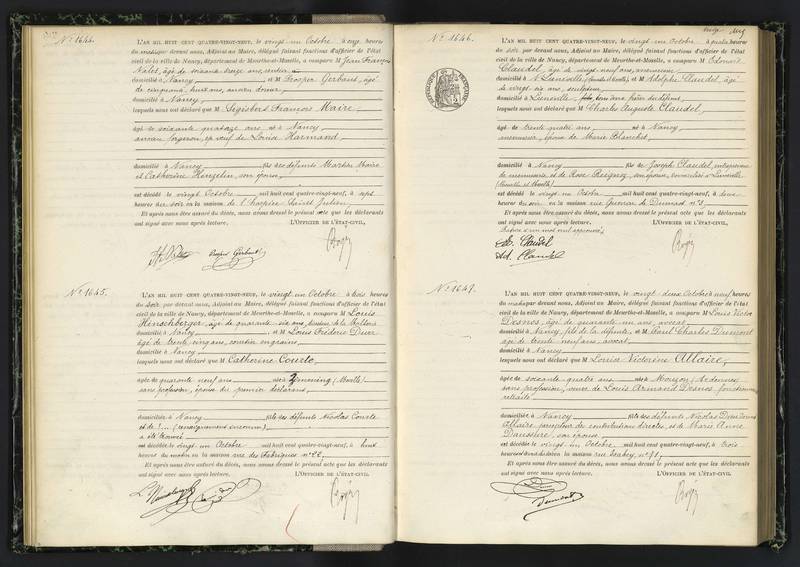 N° 1644.
L'AN MIL HUIT CENT QUATRE-VINGT-NEUF, le vingt un Octobre à onze heures
du matin par devant nous, Adjoint au Maire, délégué faisant fonctions d'officier de l'état
civil de la ville de Nancy, département de Meurthe-et-Moselle, a comparu M Jean François
âgé de soixante treize ans, rentier
domicilié à Nancy et M Prosper Gerbaut, âgé
de cinquante huit ans, ancien
domicilié à Nancy
lesquels nous ont déclaré que M Sigisbert François Maire,
âgé de soixante quatorze ans né à Nancy
ancien forgeron, veuf de Louise Harmand
domicilié à Nancy fils de défunts Martin Maire
et Catherine Henzelin, son épouse
est décédé le vingt Octobre mil huit cent quatre-vingt-neuf, à sept
heures du soir en la maison de l'hospice Saint Julien
Et après nous être assuré du décès, nous avons dressé le présent acte que les déclarants
ont signé avec nous après lecture. L'OFFICIER DE L'ÉTAT-CIVIL,
N° 1645.
L'AN MIL HUIT CENT QUATRE-VINGT-NEUF, le vingt un Octobre à trois heures
du soir par devant nous, Adjoint au Maire, délégué faisant fonctions d'officier de l'état
civil de la ville de Nancy, département de Meurthe-et-Moselle, a comparu M Louis
Hirschberger, âgé de quarante six ans,
domicilié à Nancy et M Louis Frédéric
âgé de trente cinq ans, courtier en grains
domicilié à Nancy
lesquels nous ont déclaré que M Catherine Courte,
âgée de quarante neuf ans née à (Moselle)
sans profession, épouse du premier déclarant
domiciliée à Nancy fille des défunts Nicolas Courte
et de ... (renseignement inconnu)
est décédée le vingt un Octobre mil huit cent quatre-vingt-neuf, à huit
heures du matin en la maison rue des Fabriques n° 22
Et après nous être assuré du décès, nous avons dressé le présent acte que les déclarants
ont signé avec nous après lecture. L'OFFICIER DE L'ÉTAT-CIVIL,
N° 1646.
L'AN MIL HUIT CENT QUATRE-VINGT-NEUF, le vingt un Octobre à quatre heures
du soir par devant nous, Adjoint au Maire, délégué faisant fonctions d'officier de l'état
civil de la ville de Nancy, département de Meurthe-et-Moselle, a comparu M Edouard
Claudel, âgé de vingt neuf ans, menuisier
domicilié à Luneville (Meurthe et Moselle), et M Adolphe Claudel, âgé
de vingt six ans, sculpteur
domicilié à Luneville, tous deux frères du défunt
lesquels nous ont déclaré que M Charles Auguste Claudel,
âgé de trente quatre ans né à Nancy
menuisier, époux de Marie Blanchet
domicilié à Nancy fils de Joseph Claudel, entrepreneur
de menuiserie, et de Rose son épouse, domiciliés à Luneville
(Meurthe et Moselle)
est décédé le vingt un Octobre mil huit cent quatre-vingt-neuf, à deux
heures du soir en la maison rue
Et après nous être assuré du décès, nous avons dressé le présent acte que les déclarants
ont signé avec nous après lecture. L'OFFICIER DE L'ÉTAT-CIVIL,
Ed. Claudel
Ad. Claudel
RÉPUBLIQUE FRANÇAISE
N° 1647.
L'AN MIL HUIT CENT QUATRE-VINGT-NEUF, le vingt deux Octobre à neuf heures
du matin par devant nous, Adjoint au Maire, délégué faisant fonctions d'officier de l'état
civil de la ville de Nancy, département de Meurthe-et-Moselle, a comparu M Louis Victor
Desnos, âgé de quarante un ans, avocat
domicilié à Nancy, fils de la défunte, et M Paul Charles Dumont
âgé de trente neuf ans, avocat
domicilié à Nancy
lesquels nous ont déclaré que M Louise Victorine Allaire,
âgée de soixante quatre ans née à Mouzon (Ardennes)
sans profession, veuve de Louis Armand Desnos, fonctionnaire
retraité
domiciliée à Nancy fille des défunts Nicolas
Allaire, percepteur des contributions directes, et de Marie Anne
son épouse
est décédée le vingt un Octobre mil huit cent quatre-vingt-neuf, à trois
heures du soir en la maison rue
Et après nous être assuré du décès, nous avons dressé le présent acte que les déclarants
ont signé avec nous après lecture. L'OFFICIER DE L'ÉTAT-CIVIL,
Dumont